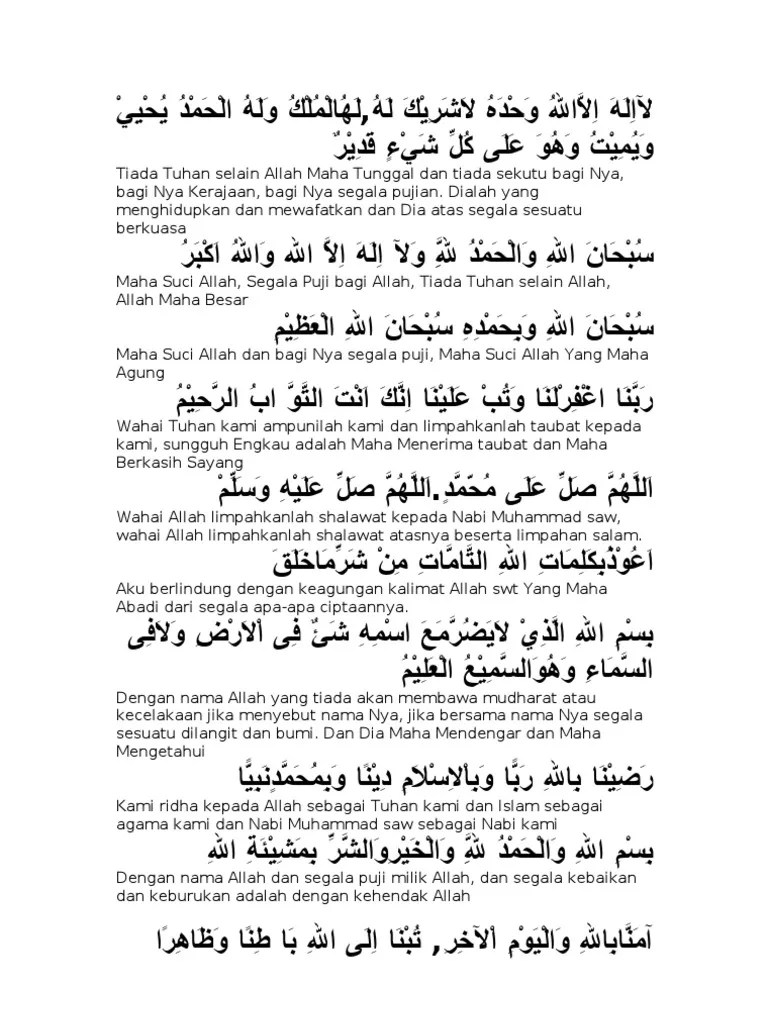 لَآاِلَهَ اِلاَّاللهُ وَحْدَهُ لاَشَرِيْكَ لَهُ,لَهُالْمُلْكُ وَلَهُ الْحَمْدُ يُحْيِيْ
وَيُمِيْتُ وَهُوَ عَلَى كُلِّ شَيْءٍ قَدِيْرٌ
Tiada Tuhan selain Allah Maha Tunggal dan tiada sekutu bagi Nya,
bagi Nya Kerajaan, bagi Nya segala pujian. Dialah yang
menghidupkan dan mewafatkan dan Dia atas segala sesuatu
berkuasa
سُبْحَانَ اللهِ وَالْحَمْدُ لِلَّهِ وَلَآ اِلَهَ اِلاَّ الله وَاللهُ اَكْبَرُ
Maha Suci Allah, Segala Puji bagi Allah, Tiada Tuhan selain Allah,
Allah Maha Besar
سُبْحَانَ اللهِ وَبِحَمْدِهِ سُبْحَانَ اللهِ الْعَظِيْمِ
Maha Suci Allah dan bagi Nya segala puji, Maha Suci Allah Yang Maha
Agung
رَبَّنَا اغْفِرْلَنَا وَتُبْ عَلَيْنَا اِنَّكَ اَنْتَ التَّوَّ ابُ الرَّحِيْمُ
Wahai Tuhan kami ampunilah kami dan limpahkanlah taubat kepada
kami, sungguh Engkau adalah Maha Menerima taubat dan Maha
Berkasih Sayang
اَللَّهُمَّ صَلِّ عَلَى مُحّمَّدٍ.اَللَّهُمَّ صَلِّ عَلَيْهِ وَسَلِّمْ
Wahai Allah limpahkanlah shalawat kepada Nabi Muhammad saw,
wahai Allah limpahkanlah shalawat atasnya beserta limpahan salam.
اَعُوْذُبِكَلِمَاتِ اللهِ التَّامَّاتِ مِنْ شَرِّمَاخَلَقَ
Aku berlindung dengan keagungan kalimat Allah swt Yang Maha
Abadi dari segala apa-apa ciptaannya.
بِسْمِ اللهِ الَّذِيْ لاَيَضُرُّمَعَ اسْمِهِ شَئٌ فِى اْلاَرْضِ وَلاَفِى
السَّمَاءِ وَهُوَالسَّمِيْعُ الْعَلِيْمُ
Dengan nama Allah yang tiada akan membawa mudharat atau
kecelakaan jika menyebut nama Nya, jika bersama nama Nya segala
sesuatu dilangit dan bumi. Dan Dia Maha Mendengar dan Maha
Mengetahui
رَضِيْنَا بِاللهِ رَبًّا وَبِاْلاِسْلَامِ دِيْنًا وَبِمُحَمَّدٍنَبِيًّا
Kami ridha kepada Allah sebagai Tuhan kami dan Islam sebagai
agama kami dan Nabi Muhammad saw sebagai Nabi kami
بِسْمِ اللهِ وَالْحَمْدُ لِلَّهِ وَالْخَيْرِوَالشَّرِّ بِمَشِيْئَةِ اللهِ
Dengan nama Allah dan segala puji milik Allah, dan segala kebaikan
dan keburukan adalah dengan kehendak Allah
آمَنَّابِاللهِ وَالْيَوْمِ اْلآخِرِ, تُبْنَا اِلَى اللهِ بَا طِنًا وَظَاهِرًا